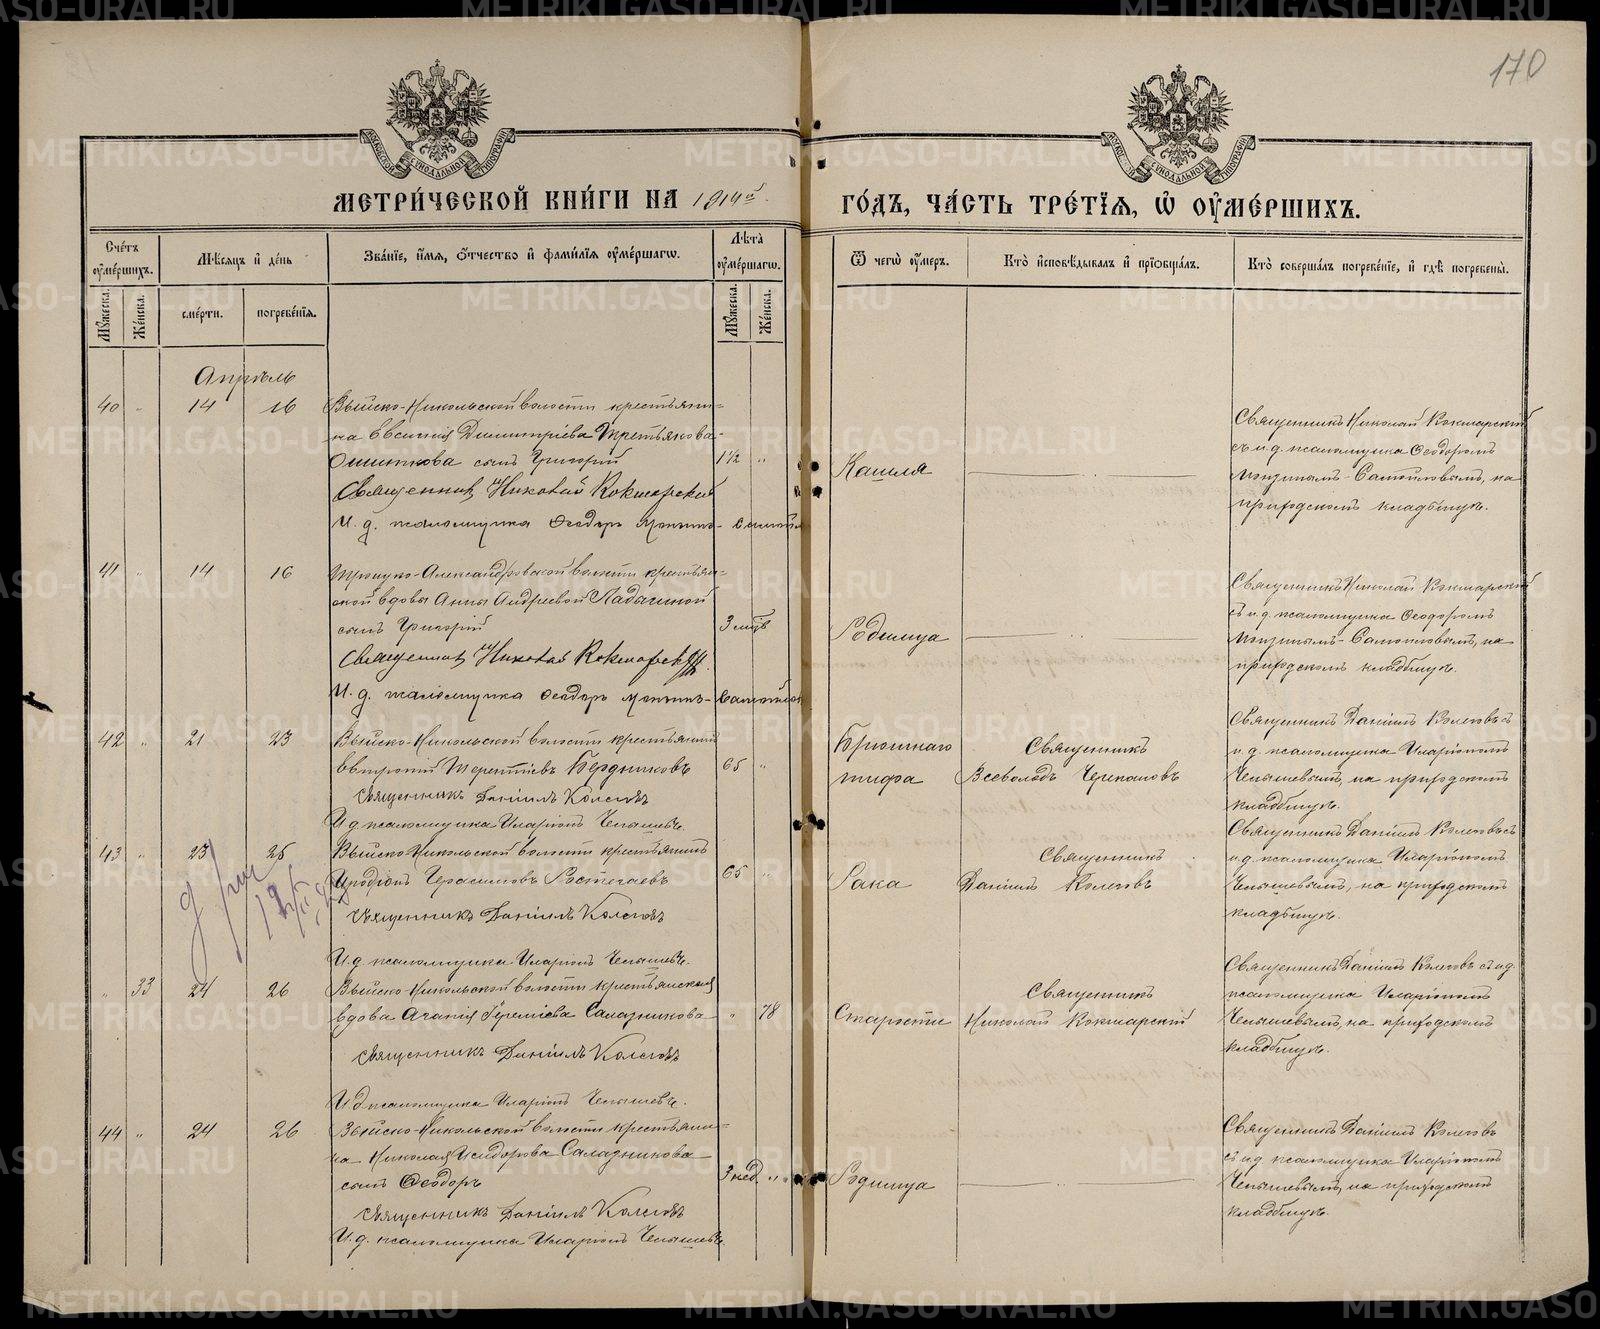 170
МОСКОВСКОЙ СѴНОДАЛЬНОЙ ТИПОГРАФІИ
МОСКОВСКОЙ СѴНОДАЛЬНОЙ ТИПОГРАФІИ
МЕТРИ́ЧЕСКОЙ КНИ́ГИ НА 1914й
ГО́ДЪ, ЧА́СТЬ ТРЕ́ТІЯ, Ѡ ОУМЕ́РШИХЪ.
Сче́тъ оуме́ршихъ.
Мѣ́сяцъ и де́нь
Зва́нїе, и́мя, о́тчество и фами́лїя оуме́ршагѡ.
Лѣ́та оуме́ршагѡ.
Ѿ чегѡ̀ оу́меръ.
Кто̀ исповѣ́дывалъ и прїѡбща́лъ.
Кто̀ соверша́лъ погребе́нїе, и гдѣ̀ погребены̀.
Му́жеска.
Же́нска.
сме́рти.
погребе́нїя.
Му́жеска.
Же́нска.
Апрѣль
40 " 14 16 Выйско-Никольской волости крестьяни-
на Евсигнія Димитріева Третьякова-
Ошиткова сынъ Григорій 1½ "
Священникъ Николай Кокшарскій
И. д. псаломщика Ѳеодоръ
Кашля
Священникъ Николай Кокшарскій
съ и.д. псаломщика Ѳеодоромъ
Самойловымъ, на
приходскомъ кладбищѣ.
41 " 14 16 Троицко-Александровской волости крестьян-
ской вдовы Анны Андреевой Ладыгиной
сынъ Григорій 3 мцв
Священникъ Николай Кокшарскій.
И. д. псаломщика Ѳеодоръ
Родимца
Священникъ Николай Кокшарскій
съ и.д. псаломщика Ѳеодоромъ
Самойловымъ, на
приходскомъ кладбищѣ.
42 " 21 23 Выйско-Никольской волости крестьянинъ
Евтропій Терентіевъ Бердниковъ 65 "
Священникъ Даніилъ Колеговъ
И. д. псаломщика Иларіонъ Чепышевъ.
Брюшнаго
тифа
Священникъ
Всеволодъ Черепановъ
Священникъ Даніилъ Колеговъ съ
и.д. псаломщика Иларіономъ
Чепышевымъ, на приходскомъ
кладбищѣ.
43 " 23 25 Выйско-Никольской волости крестьянинъ
Иродіонъ Герасимовъ Ростегаевъ 65 "
Священникъ Даніилъ Колеговъ
И. д. псаломщика Иларіонъ Чепышевъ.
Рака
Священникъ
Даніилъ Колеговъ
Священникъ Даніилъ Колеговъ съ
и.д. псаломщика Иларіономъ
Чепышевымъ, на приходскомъ
кладбищѣ.
" 33 24 26 Выйско-Никольской волости крестьянская
вдова Агапія Іереміева Саладникова " 78
Священникъ Даніилъ Колеговъ
И. д. псаломщика Иларіонъ Чепышевъ.
Старости
Священникъ
Николай Кокшарскій
Священникъ Даніилъ Колеговъ съ и.д.
псаломщика Иларіономъ
Чепышевымъ, на приходскомъ
кладбищѣ.
44 " 24 26 Выйско-Никольской волости крестьяни-
на Николая Исидорова Саладникова
сынъ Ѳеодоръ 3 нед. "
Священникъ Даніилъ Колеговъ
И. д. псаломщика Иларіонъ Чепышевъ.
Родимца
Священникъ Даніилъ Колеговъ
съ и.д. псаломщика Иларіономъ
Чепышевымъ, на приходскомъ
кладбищѣ.
METRIKI.GASO-URAL.RU